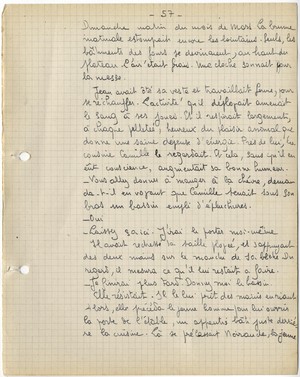 - 57 -
Dimanche matin du mois de Mars. La brume
matinale estompait encore les lointains. Seuls, les
bâtiments des fours se devinaient, au haut du
plateau. L'air était frais. Une cloche sonnait pour
la messe.
Jean avait ôté sa veste et travaillait ferme, pour
se réchauffer. L'activité qu'il déployait amenait
le sang à ses joues. Et il respirait largement,
à chaque pelletée, heureux du plaisir animal que
donne une saine dépense d'énergie. Près de lui, la
cousine Camille le regardait. Et cela, sans qu'il en
eût conscience, augmentait sa bonne humeur.
- Vous allez donner à manger à la chèvre, deman-
da-t-il en voyant que Camille tenait sous son
bras un bassin empli d'épluchures.
- Oui
- Laissez ça ici. J'irai le porter moi-même
Il avait redressé sa taille ployée, et s'appuyant
des deux mains sur le manche de sa bêche. Du
regard, il mesura ce qu'il en restait à faire.
- Je finirai plus tard. Donnez-moi le bassin.
Elle résistait. Il le lui prit des mains en riant
Alors, elle précéda le jeune homme pour lui ouvrir
la porte de l'étable, un appentis bâti juste derriè-
re la cuisine. Là se prélassait Noiraude, la jeune